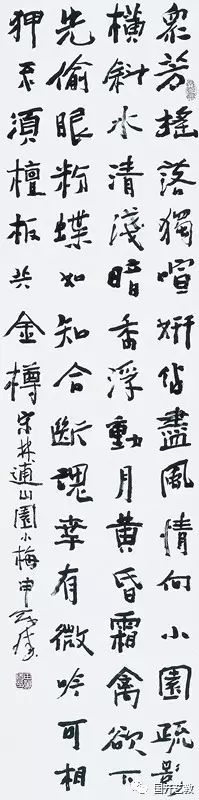 衆芳搖落獨喧妍佔盡風情向小園疏影
橫斜水清淺暗香浮動月黃昏霜禽欲下
先偷眼粉蝶如知合斷魂幸有微吟可相
狎不須檀板共金樽 宋林逋山園小梅 申
国开艺教